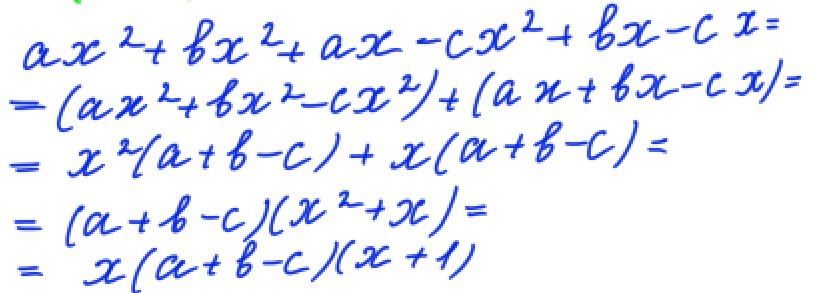 ax²+bx²+ax-cx²+bx-cx=
=(ax²+bx²-cx²)+(ax+bx-cx)=
= x²(a+b-c)+x(a+b-c)=
= (a+b-c)(x²+x)=
= x(a+b-c)(x+1)